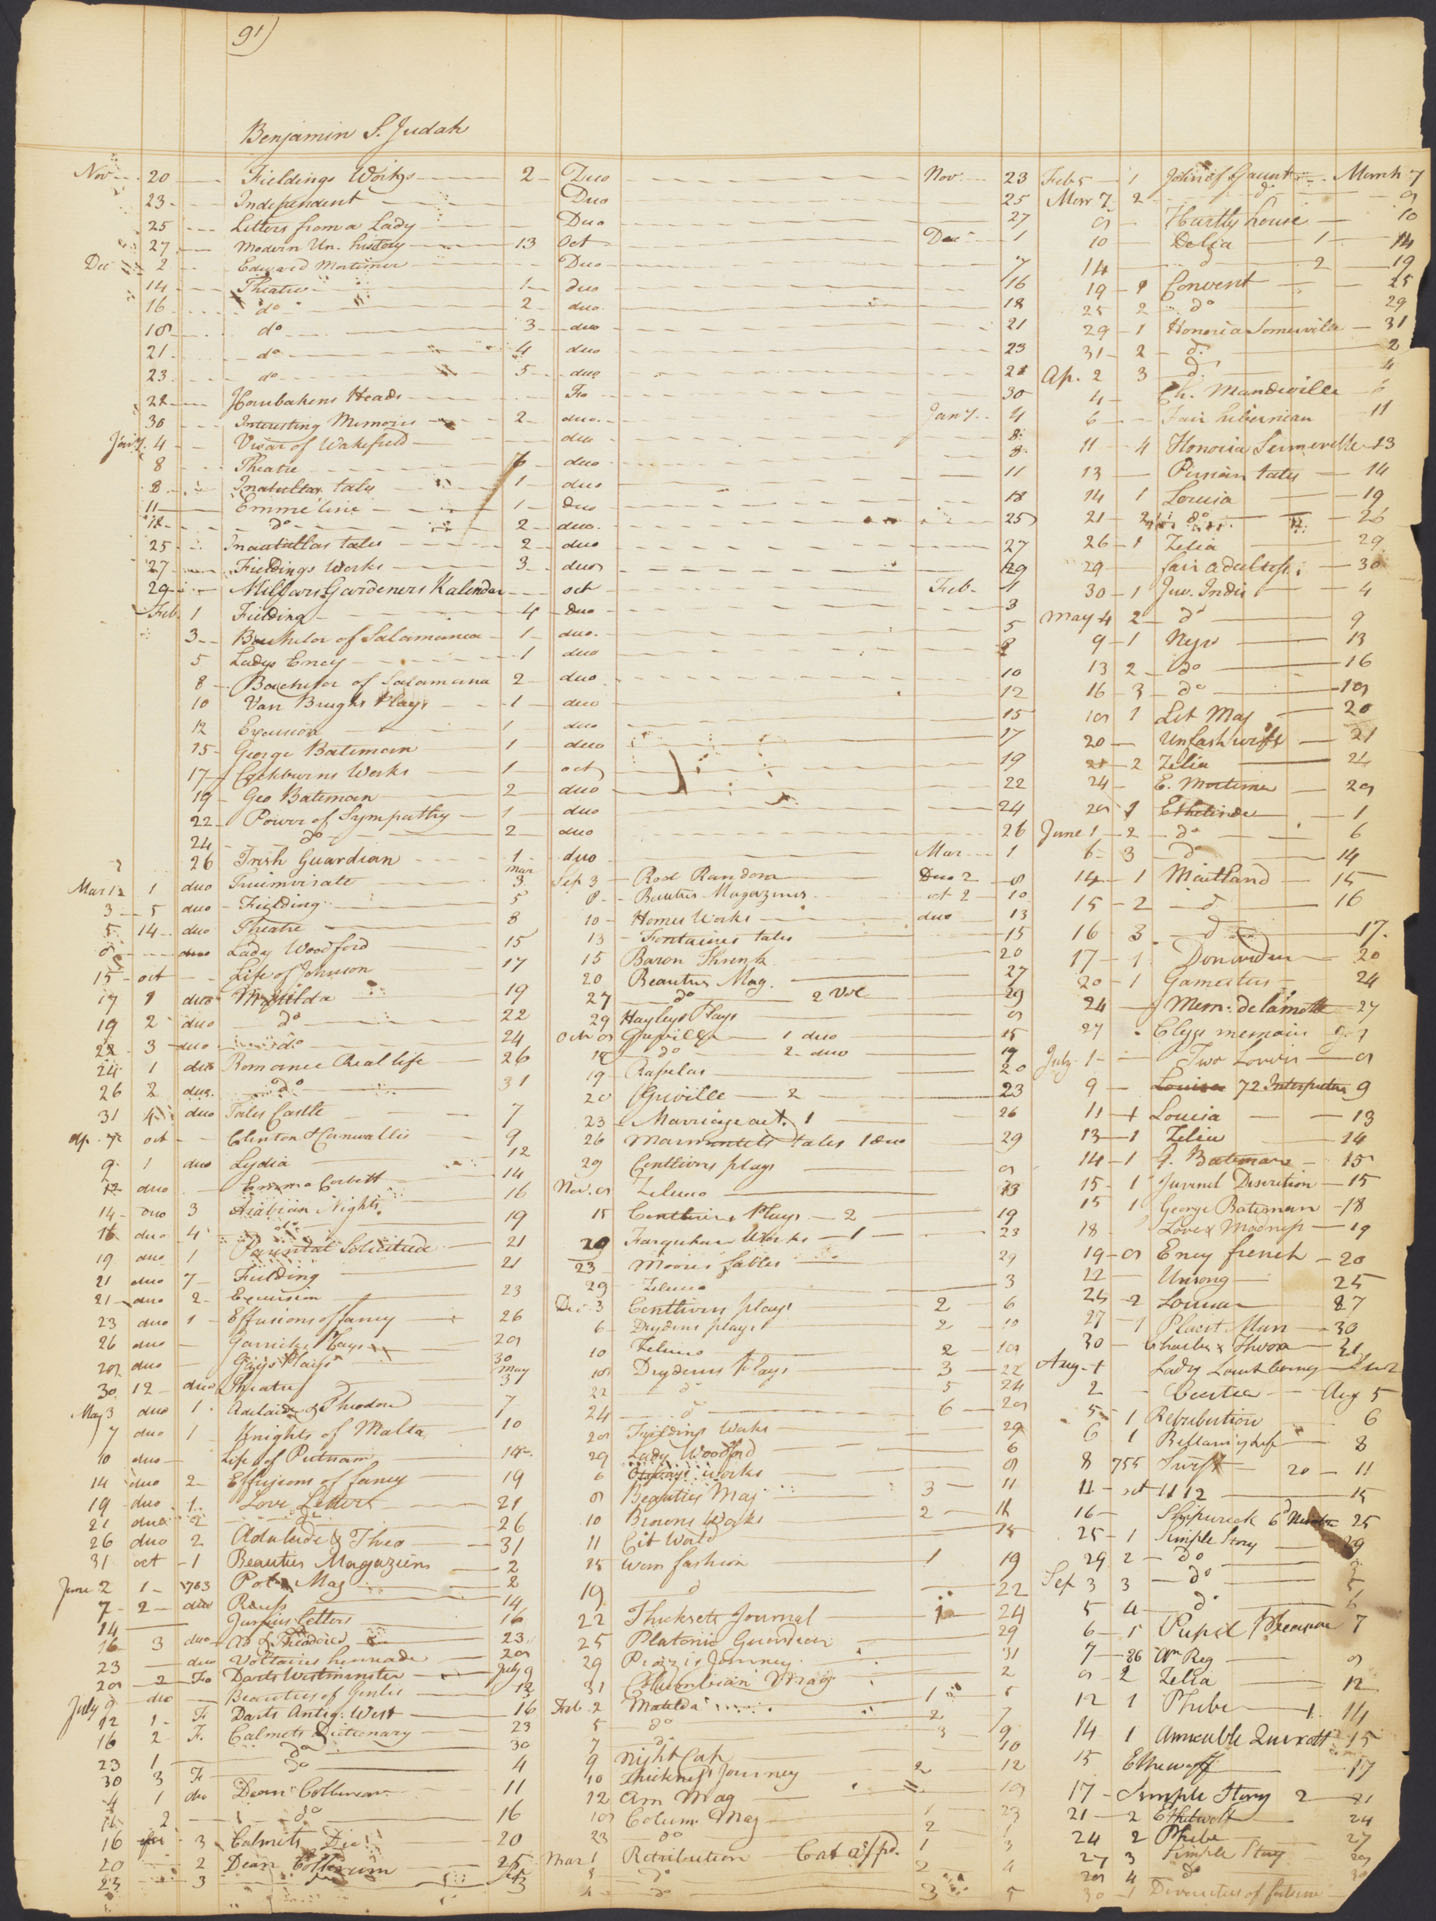 91)
Benjamin S. Judah
Nov 20 Fieldings Works 2 Duo Nov 23
23 Independent Duo 25
25 Letters from a Lady Duo 27
27 Modern Un. history 13 Oct Dec 1
Dec 2 Edward Mortimer Duo 7
14 Theatre 1 duo 16
16 do 2 duo 18
18 do 3 duo 21
21 do 4 duo 23
23 do 5 duo 28
28 Houbakens Heads Fo 30
30 Interesting Memoirs 2 duo Jany 4
Jany 4 Vicar of Wakefield duo 8
8 Theatre 6 duo 11
8 Inatullas tales 1 duo
11 Emmeline 1 Duo 18
18 do 2 duo 25
25 Inatullas tales 2 duo 27
27 Fieldings Works 3 duo 29
29 Millars Gardeners Kalendar oct Feb 1
Feb 1 Fielding 4 Duo 3
3 Bachelor of Salamanca 1 duo 5
5 Ladys Ency 1 duo 8
8 Bachelor of Salamanca 2 duo 10
10 Van Brughs Plays 1 duo 12
12 Excursion 1 duo 15
15 George Bateman 1 duo 17
17 Cockburns Works 1 oct 19
19 Geo Bateman 2 duo 22
22 Power of Sympathy 1 duo 24
24 do 2 duo 26
26 Irish Guardian 1 duo Mar 1
Mar 1 2 1 duo Triumvirate 3
3 5 duo Fielding 5
5 14 duo Theatre 8
8 duo Lady Woodford 15
15 oct Life of Johnson 17
17 1 duo Matilda 19
19 2 duo do 22
22 3 duo do 24
24 1 duo Romance Real life 26
26 2 duo do 31
31 4 duo Tales Castle 7
Ap. 7 oct Clinton & Cornwallis 9
9 1 duo Lydia 12
12 duo Emma Corbett 14
14 duo 3 Arabian Nights 16
16 duo 4 do 19
19 duo 1 Parental Solicitude 21
21 duo 7 Fielding 21
21 duo 2 Excursion 23
23 duo 1 Effusions of fancy 26
26 duo Garricks Plays 28
28 duo Gays Plays 30
30 12 duo Theatre May 3
May 3 duo 1 Adelaide & Theodore 7
7 duo 1 Knights of Malta 10
10 duo Life of Putnam 14
14 duo 2 Effusions of fancy 19
19 duo 1 Love Letters 21
21 duo 2 do 26
26 duo 2 Adelaide & Theo 31
31 oct 1 Beauties Magazins 2
June 2 1 1783 Polt Mag 2
7 2 duo 14
14 Junius Letters 16
16 3 duo 23
23 duo Voltaires henriade 28
28 2 Fo Darts Westminster July 9
July 9 duo Beauties of Gentes 12
12 1 F Darts Antiq: West 16
16 2 F. Calmets Dictionary 23
23 1 do 30
30 3 F 4
4 1 duo Dean Colleraine 11
11 2 do 16
16 3 Calmets Dic 20
20 2 Dean Colleraine 25
23 3
Sep 3 Rod Random Duo 2 8
8 Beauties Magazines oct 2 10
10 Homes Works duo 13
13 Fontaines tales 15
15 Baron Thrnck 20
20 Beauties Mag. 27
27 do 2 Vol 29
29 Hayleys Plays 8
Octr 8 Greville 1 duo 15
15 do 2 duo 19
19 Rapelas 20
20 Greville 2 23
23 Marriage act. 1 26
26 Marmontels tales 1 duo 29
29 Centlivres plays 8
Nov. 8 Zeluco 13
15 Centlivres Plays 2 19
19 Farquhar Works 1 23
23 Moores fables 29
29 Zeluco 3
Dec 3 Centlivres plays 2 6
6 Drydens plays 2 10
10 Zeluco 2 18
18 Drydens Plays 3 22
22 do 5 24
24 do 6 28
28 Fieldings Works 29
29 Lady Woodford 6
6 works 8
8 Beauties Mag 3 11
10 Browns Works 2 14
11 Cit World 15
15 Wom fashion 1 19
19 do 22
22 Thicksets Journal 1 24
25 Platonic Guardian 29
29 Piozzis Journey 31
31 Columbian Mag 2
Feb 2 Matilda 1 5
5 do 2 7
7 do 3 9
9 Night Cap 10
10 Thickness Journey 2 12
12 Am Mag 18
18 Colum. Mag 1 23
23 do 2
Mar 1 Retribution 1 3
3 do 2 4
4 do 3 5
Feb 5 1 John of Gaunt March 7
Mar 7 2 do 9
9 Hartly house 10
10 Delia 1 14
14 do 2 19
19 1 Convent 25
25 2 do 29
29 1 Honoria Somerville 31
31 2 do 2
Ap. 2 3 do 4
4 Ch. Mandeville 6
6 Fair hibernian 11
11 4 Honoria Somerville 13
13 Persian tales 14
14 1 Louisa 19
21 2 do 26
26 1 Zelia 29
29 fair adultress 30
30 1 Juv. Indis 4
May 4 2 do 9
9 1 Negro 13
13 2 do 16
16 3 do 18
18 1 Lit Mag 20
20 Unfash wife 21
21 2 Zelia 24
24 E. Mortimer 28
28 1 Ethelinde 1
June 1 2 do 6
6 3 do 14
14 1 Maitland 15
15 2 do 16
16 3 do 17
17 1 20
20 1 Gamesters 24
24 Mem: de lamotte 27
27 memoirs
July 1 Two Lovers 9
9 Louisa 72 Interpreter 9
11 1 Louisa 13
13 1 Zelia 14
14 1 G. Bateman 15
15 1 Juvenil Discretion 15
15 1 George Bateman 18
18 Love & Madness 19
19 9 Ency french 20
22 Unsong 25
25 2 Louisa 27
27 1 Placit. Man 30
30 Charles & Thirza 31
Aug. 1 Lady
2 Cecilia Aug 5
5 1 Retribution 6
6 1 Bellamys life 8
8 755 Swift 20 11
11 oct 11 12 15
16 Shipwreck 25
25 1 Simple Story 29
29 2 do 3
Sep 3 3 do 5
5 4 do 6
6 1 Pupil Pleasure 7
7 86 Wn Reg 9
9 2 Zelia 12
12 1 Phebe 1 14
14 1 Amicable Quixott 15
15 17
17 Simple Story 2 21
21 2 24
24 2 Phebe 27
27 3 Simple Story 28
28 4 do 30
30 1